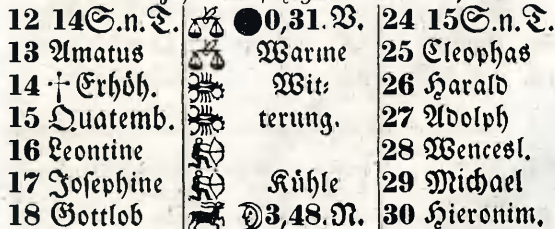 12 14 S. n. T. 0,31. V. 24 15 S. n. T.
13 Amatus Warme 25 Cleophas
14 † Erhöh. Wit⸗ 26 Harald
15 Quatemb. terung. 27 Adolph
16 Leontine 28 Wencesl.
17 Josephine Kühle 29 Michael
18 Gottlob 3,48. N. 30 Hieronim.